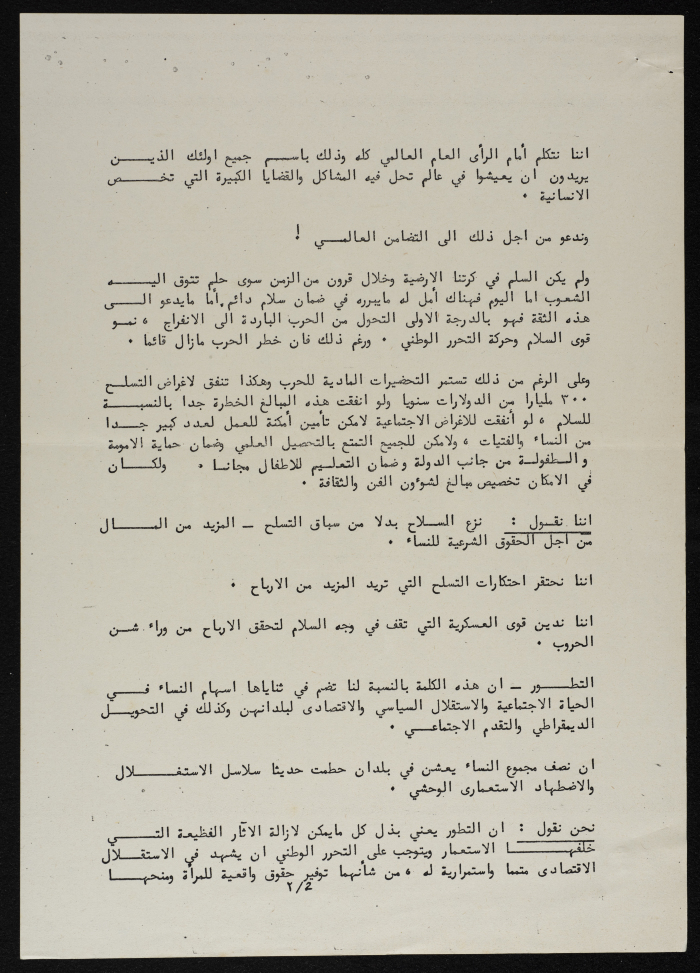 اننا نتكلم أمام الرأى العام العالمي كله وذلك باسم جميع اولئك الذين
يريدون ان يعيشوا في عالم تحل فيه المشاكل والقضايا الكبيرة التي تخص
الانسانية ٠
وندعو من اجل ذلك الى التضامن العالمي !
ولم يكن السلم في كرتنا الارضية وخلال قرون من الزمن سوى حلم تتوق اليه
الشعوب اما اليوم فهناك أمل له مايبرره في ضمان سلام دائم، أما مايدعو الى
هذه الثقة فهو بالدرجة الاولى التحول من الحرب الباردة الى الانفراج ، نمو
قوى السلام وحركة التحرر الوطني ٠ ورغم ذلك فان خطر الحرب مازال قائما ٠
وعلى الرغم من ذلك تستمر التحضيرات المادية للحرب وهكذا تنفق لاغراض التسلح
٣٠٠ مليارا من الدولارات سنويا ولو انفقت هذه المبالغ الخطرة جدا بالنسبة
للسلام ، لو أنفقت للاغراض الاجتماعية لامكن تأمين أمكنة للعمل لعدد كبير جدا
من النساء والفتيات ، ولامكن للجميع التمتع بالتحصيل العلمي وضمان حماية الامومة
والطفولة من جانب الدولة وضمان التعليم للاطفال مجانا ٠ ولكان
في الامكان تخصيص مبالغ لشوءون الفن والثقافة ٠
اننا نقول : نزع السلاح بدلا من سباق التسلح ــ المزيد من المال
من اجل الحقوق الشرعية للنساء ٠
اننا نحتقر احتكارات التسلح التي تريد المزيد من الارباح ٠
اننا ندين قوى العسكرية التي تقف في وجه السلام لتحقق الارباح من وراء شن
الحروب ٠
التطور ــ ان هذه الكلمة بالنسبة لنا تضم في ثناياها اسهام النساء في
الحياة الاجتماعية والاستقلال السياسي والاقتصادى لبلدانهن وكذلك في التحويل
الديمقراطي والتقدم الاجتماعي ٠
ان نصف مجموع النساء يعشن في بلدان حطمت حديثا سلاسل الاستغلال
والاضطهاد الاستعمارى الوحشي ٠
نحن نقول : ان التطور يعني بذل كل مايمكن لازالة الآثار الفظيعة التي
خلفها الاستعمار ويتوجب على التحرر الوطني ان يشهد في الاستقلال
الاقتصادى متمما واستمرارية له ، من شأنهما توفير حقوق واقعية للمرأة ومنحها
٢/2